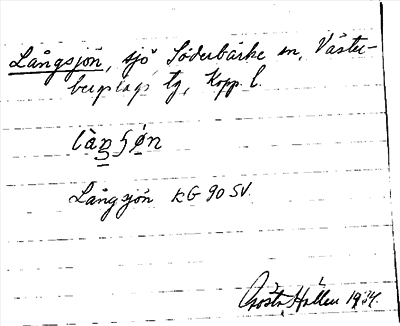 Långsjön, sjö Söderbärke sn, Väster-
bergslags tg, Kopp. l.
làŋʃøn
Långsjön KG 90 SV.
Gösta Hallen 1934.